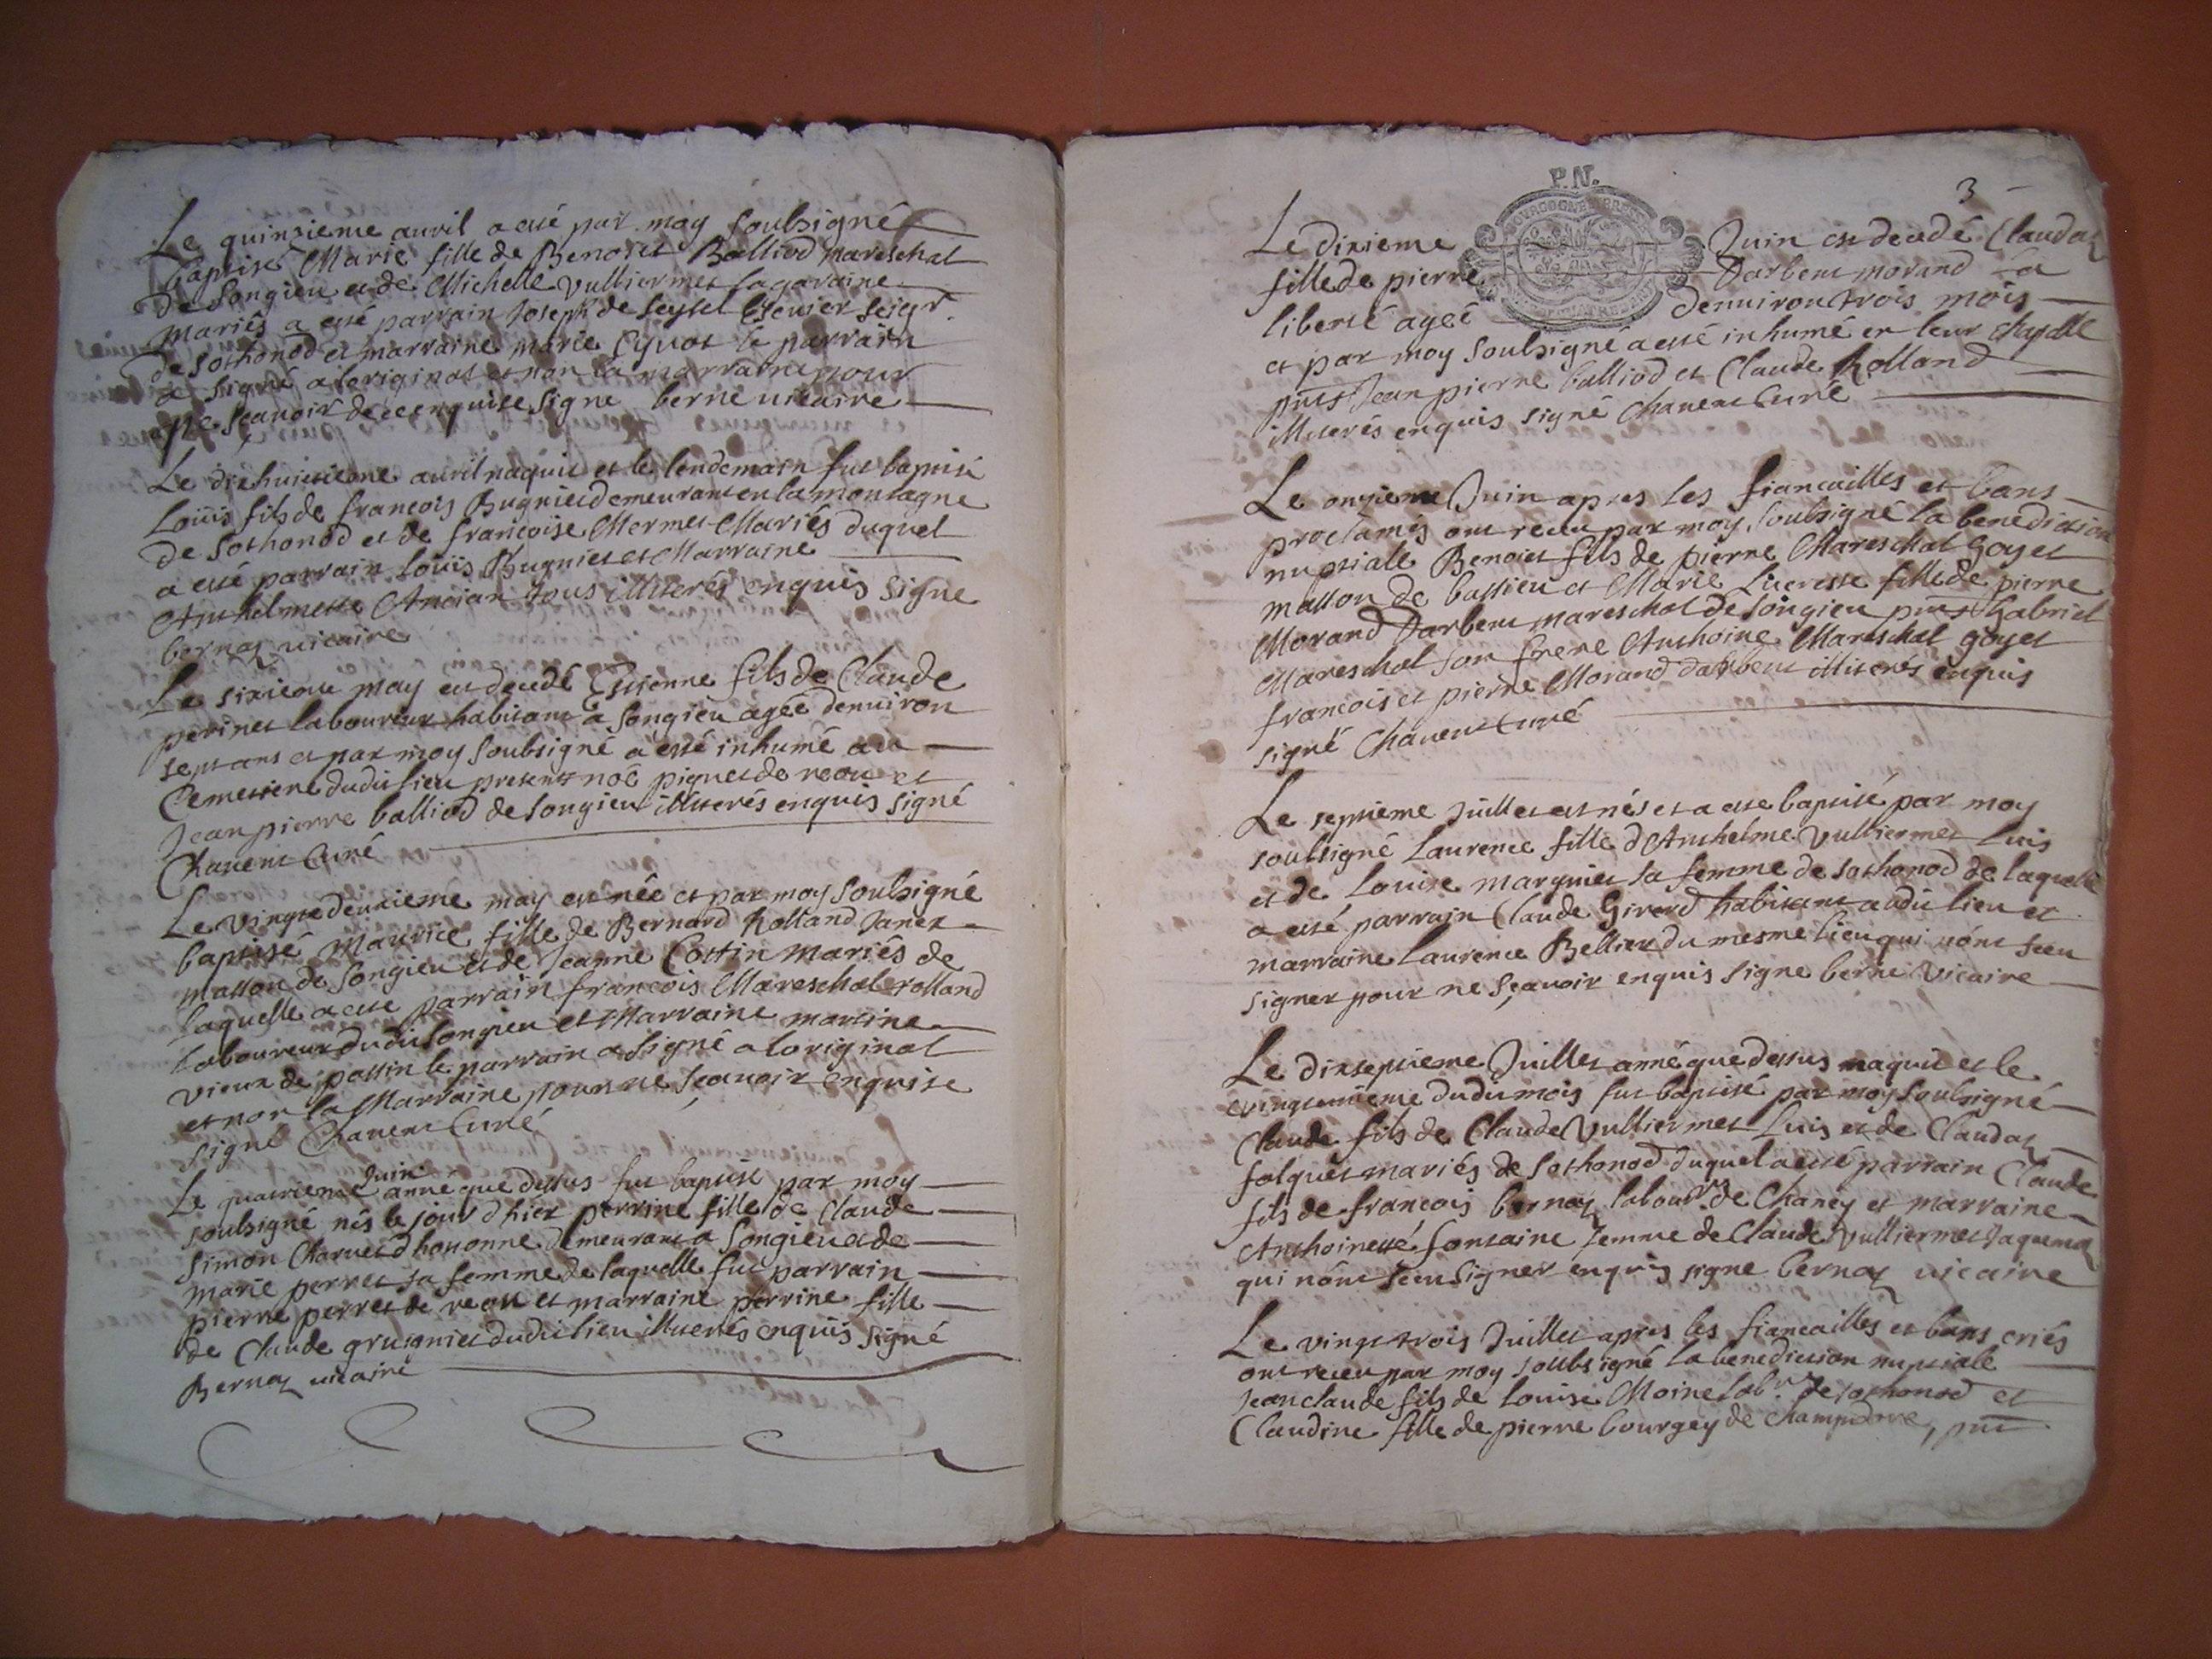 Le quinzieme auril a esté par moy soubsigné
baptisé Marie fille de Benoist Balliod mareschal
de Songieu et de Michelle Vulliermet lagaraine
mariés a esté parrain Joseph de Seyssel Escuier seigr.
de Sothonod et marraine marie Cyvot le parrain
a signé a loriginal et non la marraine pour
ne sçauoir de ce enquise signe berne uicaire
Le dixhuictieme auril naquit et le lendemain fut baptisé
Loüis fils de francois Bugniet demeurant en la montagne
de Sothonod et de francoise Mermet Mariés duquel
a esté parrain loüis Bugniet et Marraine
Anthelmette Ancian tous illiterés enquis signe
bernaz uicaire
Le sixieme may est decedé Estienne fils de Claude
perinet laboureur habitant a songieu agée denuiron
sept ans et par moy soubsigné a esté inhumé au
Cemetiere dudit lieu presents noé pignet de reou et
Jean pierre balliod de songieu illiterés enquis signé
Chauent Curé
Le vingtedeuxieme may est née et par moy soubsigné
baptisé Maurice fille de Bernard Rolland Janex
masson de Songieu et de Jeanne Cottin mariés de
laquelle a esté parrain francois Mareschal rolland
laboureur dudit songieu et Marraine martine
vieux de passin le parrain a signé a loriginal
et non la Marraine pour ne sçauoir enquise
signé Chauent Curé
Juin
Le quatrieme anné que dessus fut baptisé par moy
soubsigné nés le jour d'hier perrine fille de Claude
simon Charuet d'hotonne demeurant a Songieu et de
marie perret sa femme de laquelle fut parrain
pierre perret de reou et marraine perrine fille
de Claude grusgniet dudit lieu illiterés enquis signé
Bernaz uicaire
P.N.
3
Le dixieme Juin est decedé Claudaz
fille de pierre Darbent morand la
liberté agée denuiron trois mois
et par moy soubsigné a esté inhumé en leur chapelle
pnts Jean pierre balliod et Claude Rolland
illiterés enquis signé Chauent Curé
Le onzieme Juin apres les fiancailles et bans
proclamés ont receu par moy soubsigné la benediction
nuptiale Benoist fils de pierre Mareschal goyet
masson de bassieu et Marie Lucresse fille de pierre
Morand Darbent mareschal de songieu pnts Gabriel
Mareschal son frere Anthoine Mareschal goyet
francois et pierre Morand darbent illiterés enquis
signé Chauent Curé
Le septieme Juillet est nés et a esté baptisé par moy
soubsigné Laurence fille d'Anthelme Vulliermet Luis
et de Louise marquiet sa femme de sothonod de laquelle
a esté parrain Claude Girerd habitant audit lieu et
marraine Laurence Bellier du mesme lieu qui nont sceu
signer pour ne sçauoir enquis signe berne Vicaire
Le dixseptieme Juillet anné que dessus naquit et le
vingtunieme dudit mois fut baptisé par moy soubsigné
Claude fils de Claude Vulliermet Luis et de Claudaz
folquet mariés de Sothonod duquel a esté parrain Claude
fils de francois bernaz labourr. de Chaney et marraine
Anthoinette fontaine femme de Claude Vulliermet Jaquemaz
qui nont sceu signer enquis signe bernaz uicaire
Le vingt trois Juillet apres les fiancailles et bans criés
ont receu par moy soubsigné la benediction nuptiale
Jean claude fils de louise Moine labr. de sothonod et
Claudine fille de pierre bourgey de champdore, pnt